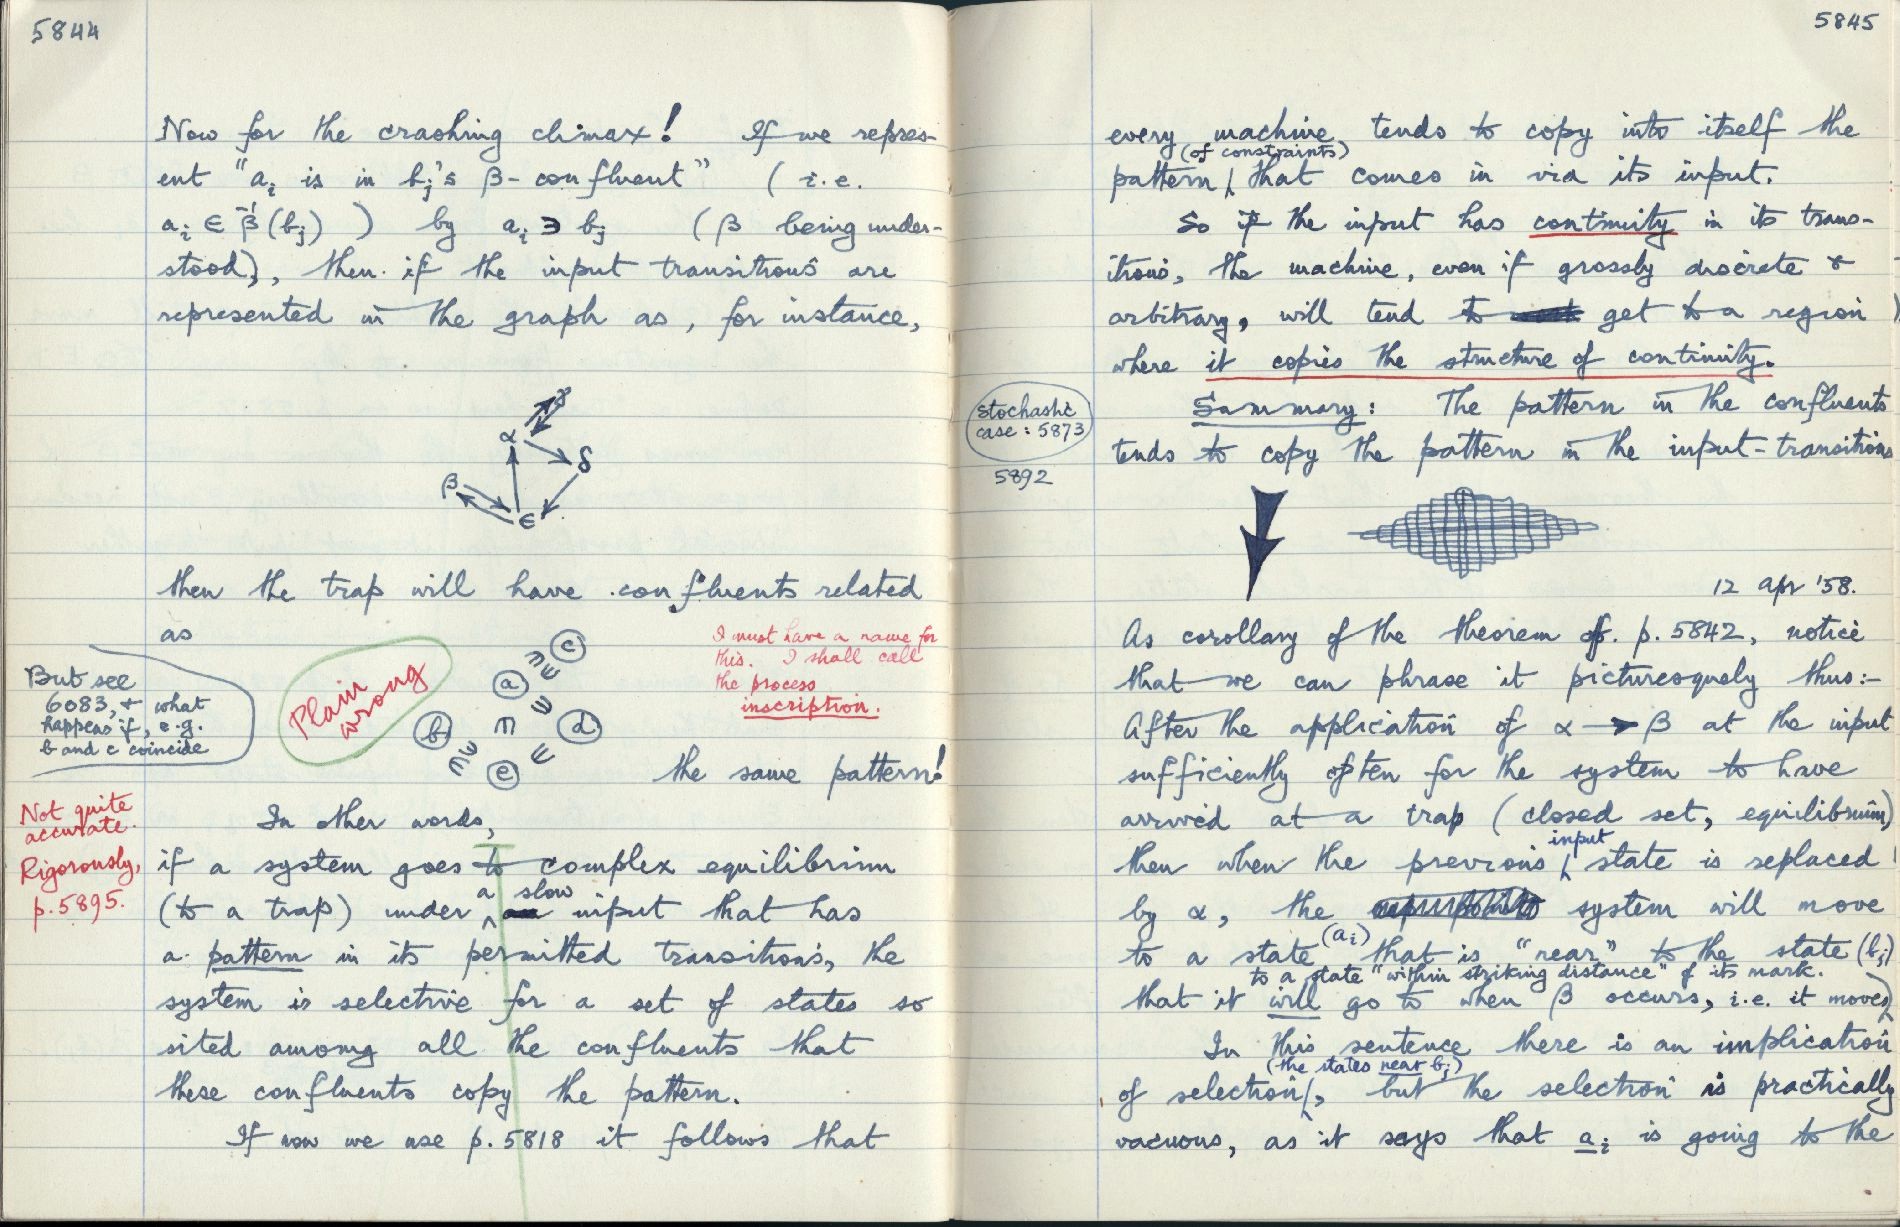 5844
Now for the crashing climax! If we repres-
ent "ai is in bj's β-confluent" (i.e.
ai ∈ β⁻¹(bj) ) by ai ∋ bj (β being under-
stood), then if the input transitions are
represented in the graph as, for instance,
γ
α
δ
β
ε
then the trap will have confluents related
as
c
a
b
d
e
Plain
wrong
I must have a name for
this. I shall call
the process
inscription.
But see
6083, & what
happens if, e.g.
b and c coincide
the same pattern!
Not quite
accurate.
Rigorously,
p.5895.
In other words,
if a system goes to complex equilibrium
(to a trap) under a slow input that has
a pattern in its permitted transitions, the
system is selective for a set of states so
sited among all the confluents that
these confluents copy the pattern.
If now we use p.5818 it follows that
5845
every machine tends to copy into itself the
pattern (of constraints) that comes in via its input.
So if the input has continuity in its trans-
itions, the machine, even if grossly discrete &
arbitrary, will tend to get to a region
where it copies the structure of continuity.
Stochastic
case: 5873
5892
Summary: The pattern in the confluents
tends to copy the pattern in the input-transitions
12 Apr '58.
As corollary of the theorem of p.5842, notice
that we can phrase it picturesquely thus:-
After the application of α → β at the input
sufficiently often for the system to have
arrived at a trap (closed set, equilibrium)
then when the previous input state is replaced
by α, the system will move
to a state (ai) that is "near" to the state (bj)
that it will go to when β occurs, i.e. it moves
to a state "within striking distance" of its mark.
In this sentence there is an implication
of selection (the states near bj), but the selection is practically
vacuous, as it says that ai is going to the